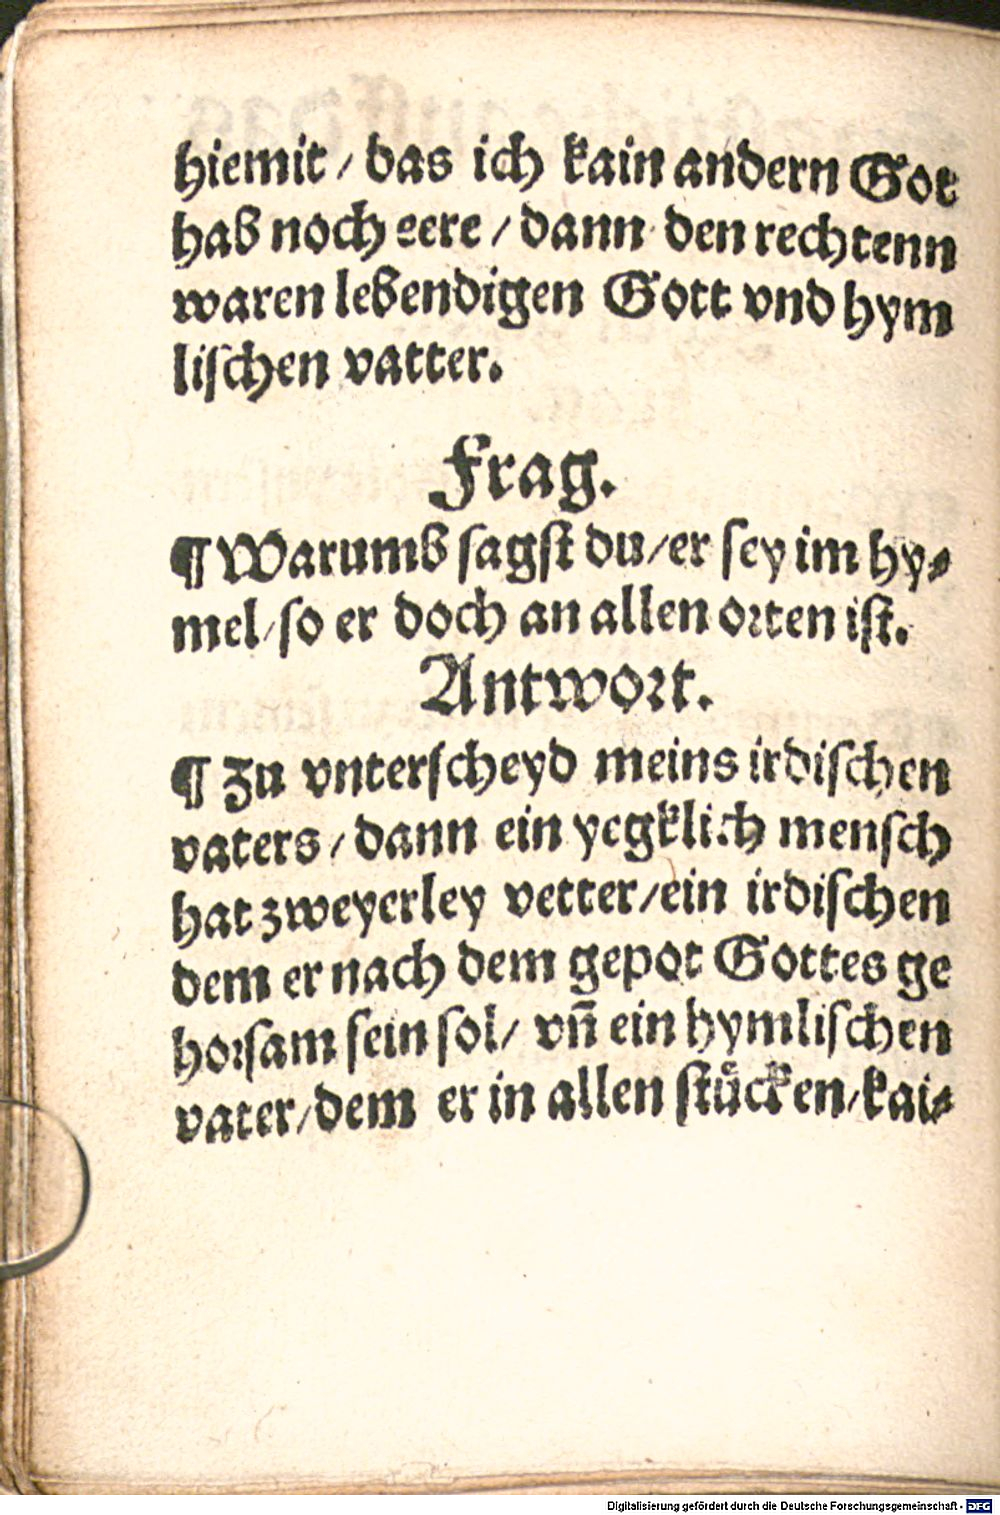 hiemit / das ich kain andern Got
hab noch eere / dann den rechtenn
waren lebendigen Gott vnd hym
lischen vatter.
Frag.
¶ Warumb sagst du / er sey im hy⸗
mel / so er doch an allen orten ist.
Antwort.
¶ Zu vnterscheyd meins irdischen
vaters / dann ein yegklich mensch
hat zweyerley vetter / ein irdischen
dem er nach dem gepot Gottes ge
horsam sein sol / vn̄ ein hymlischen
vater / dem er in allen stuͤcken / kai⸗
Digitalisierung gefördert durch die Deutsche Forschungsgemeinschaft - DFG